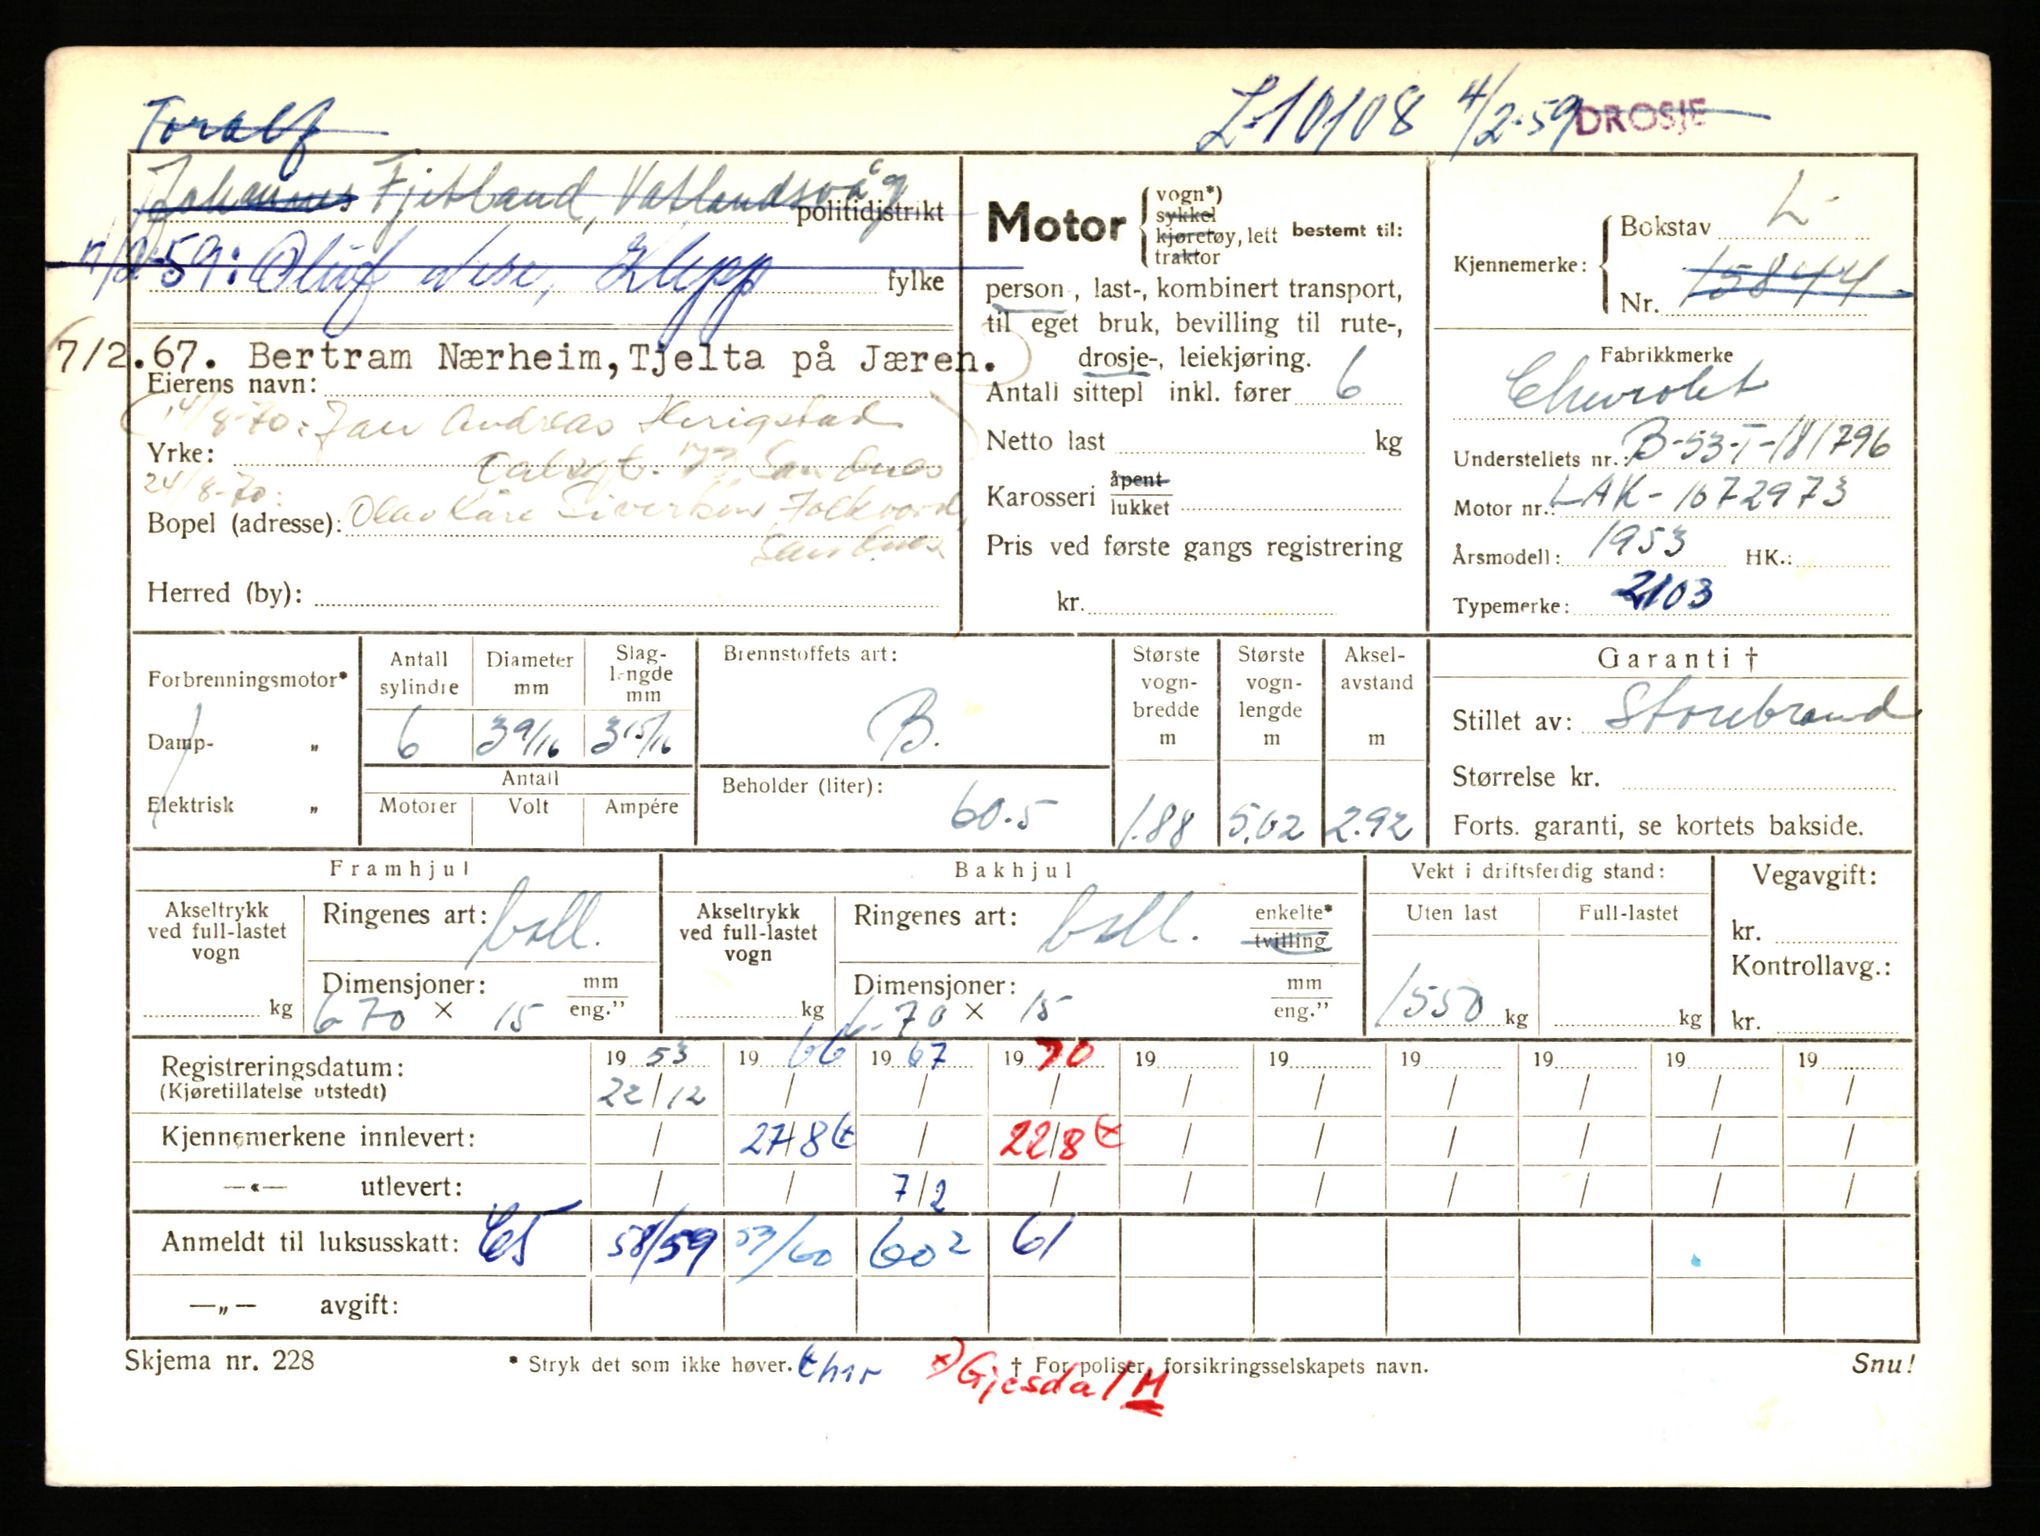 Toralf L-10108 4/2-59 DROSJE
Johannes Fjetland, Vatlandsvåg
politidistrikt
59: Oluf Klepp
fylke
7/2.67. Bertram Nærheim, Tjelta på Jæren.
Eierens navn:
14/8-70: Jan Andreas Herigstad
Yrke:
24/8-70:
Bopel (adresse): Olav Kåre Folkvord,
Sandnes
Herred (by):
Motor vogn*) sykkel kjøretøy, lett traktor bestemt til:
person-, last-, kombinert transport,
til eget bruk, bevilling til rute-,
drosje-, leiekjøring.
Antall sittepl inkl. fører 6
Netto last kg
Karosseri åpent lukket
Pris ved første gangs registrering
kr.
Kjennemerke: Bokstav L-
Nr. 15844
Fabrikkmerke
Chevrolet
Understellets nr.: B-53-T-181796
Motor nr.: LAK-1072973
Årsmodell: 1953 HK.:
Typemerke: 2103
Forbrenningsmotor*
Damp- „
Elektrisk „
Antall sylindre 6
Diameter mm 3 9/16
Slaglengde mm 3 15/16
Antall
Motorer Volt Ampére
Brennstoffets art: B.
Beholder (liter): 60.5
Største vognbredde m 1.88
Største vognlengde m 5.02
Akselavstand m 2.92
Garanti †
Stillet av: Storebrand
Størrelse kr.
Forts. garanti, se kortets bakside.
Framhjul
Akseltrykk ved full-lastet vogn kg
Ringenes art: ball.
Dimensjoner: 670 × 15 mm eng.”
Bakhjul
Akseltrykk ved full-lastet vogn kg
Ringenes art: ball. enkelte* tvilling
Dimensjoner: 6-70 × 15 mm eng.”
Vekt i driftsferdig stand:
Uten last 1550 kg
Full-lastet kg
Vegavgift:
kr.
Kontrollavg.:
kr.
Registreringsdatum: 19 53 19 66 19 67 19 70 19 19 19 19 19 19
(Kjøretillatelse utstedt) 22/12 / / / / / / / / /
Kjennemerkene innlevert: / 27/8 / 22/8 / / / / / /
—«— utlevert: / / 7/2 / / / / / / /
Anmeldt til luksusskatt: 58/59 59/60 60² 61
—„— avgift:
Skjema nr. 228 * Stryk det som ikke høver. † For poliser, forsikringsselskapets navn. Snu!
x) Gjesdal M